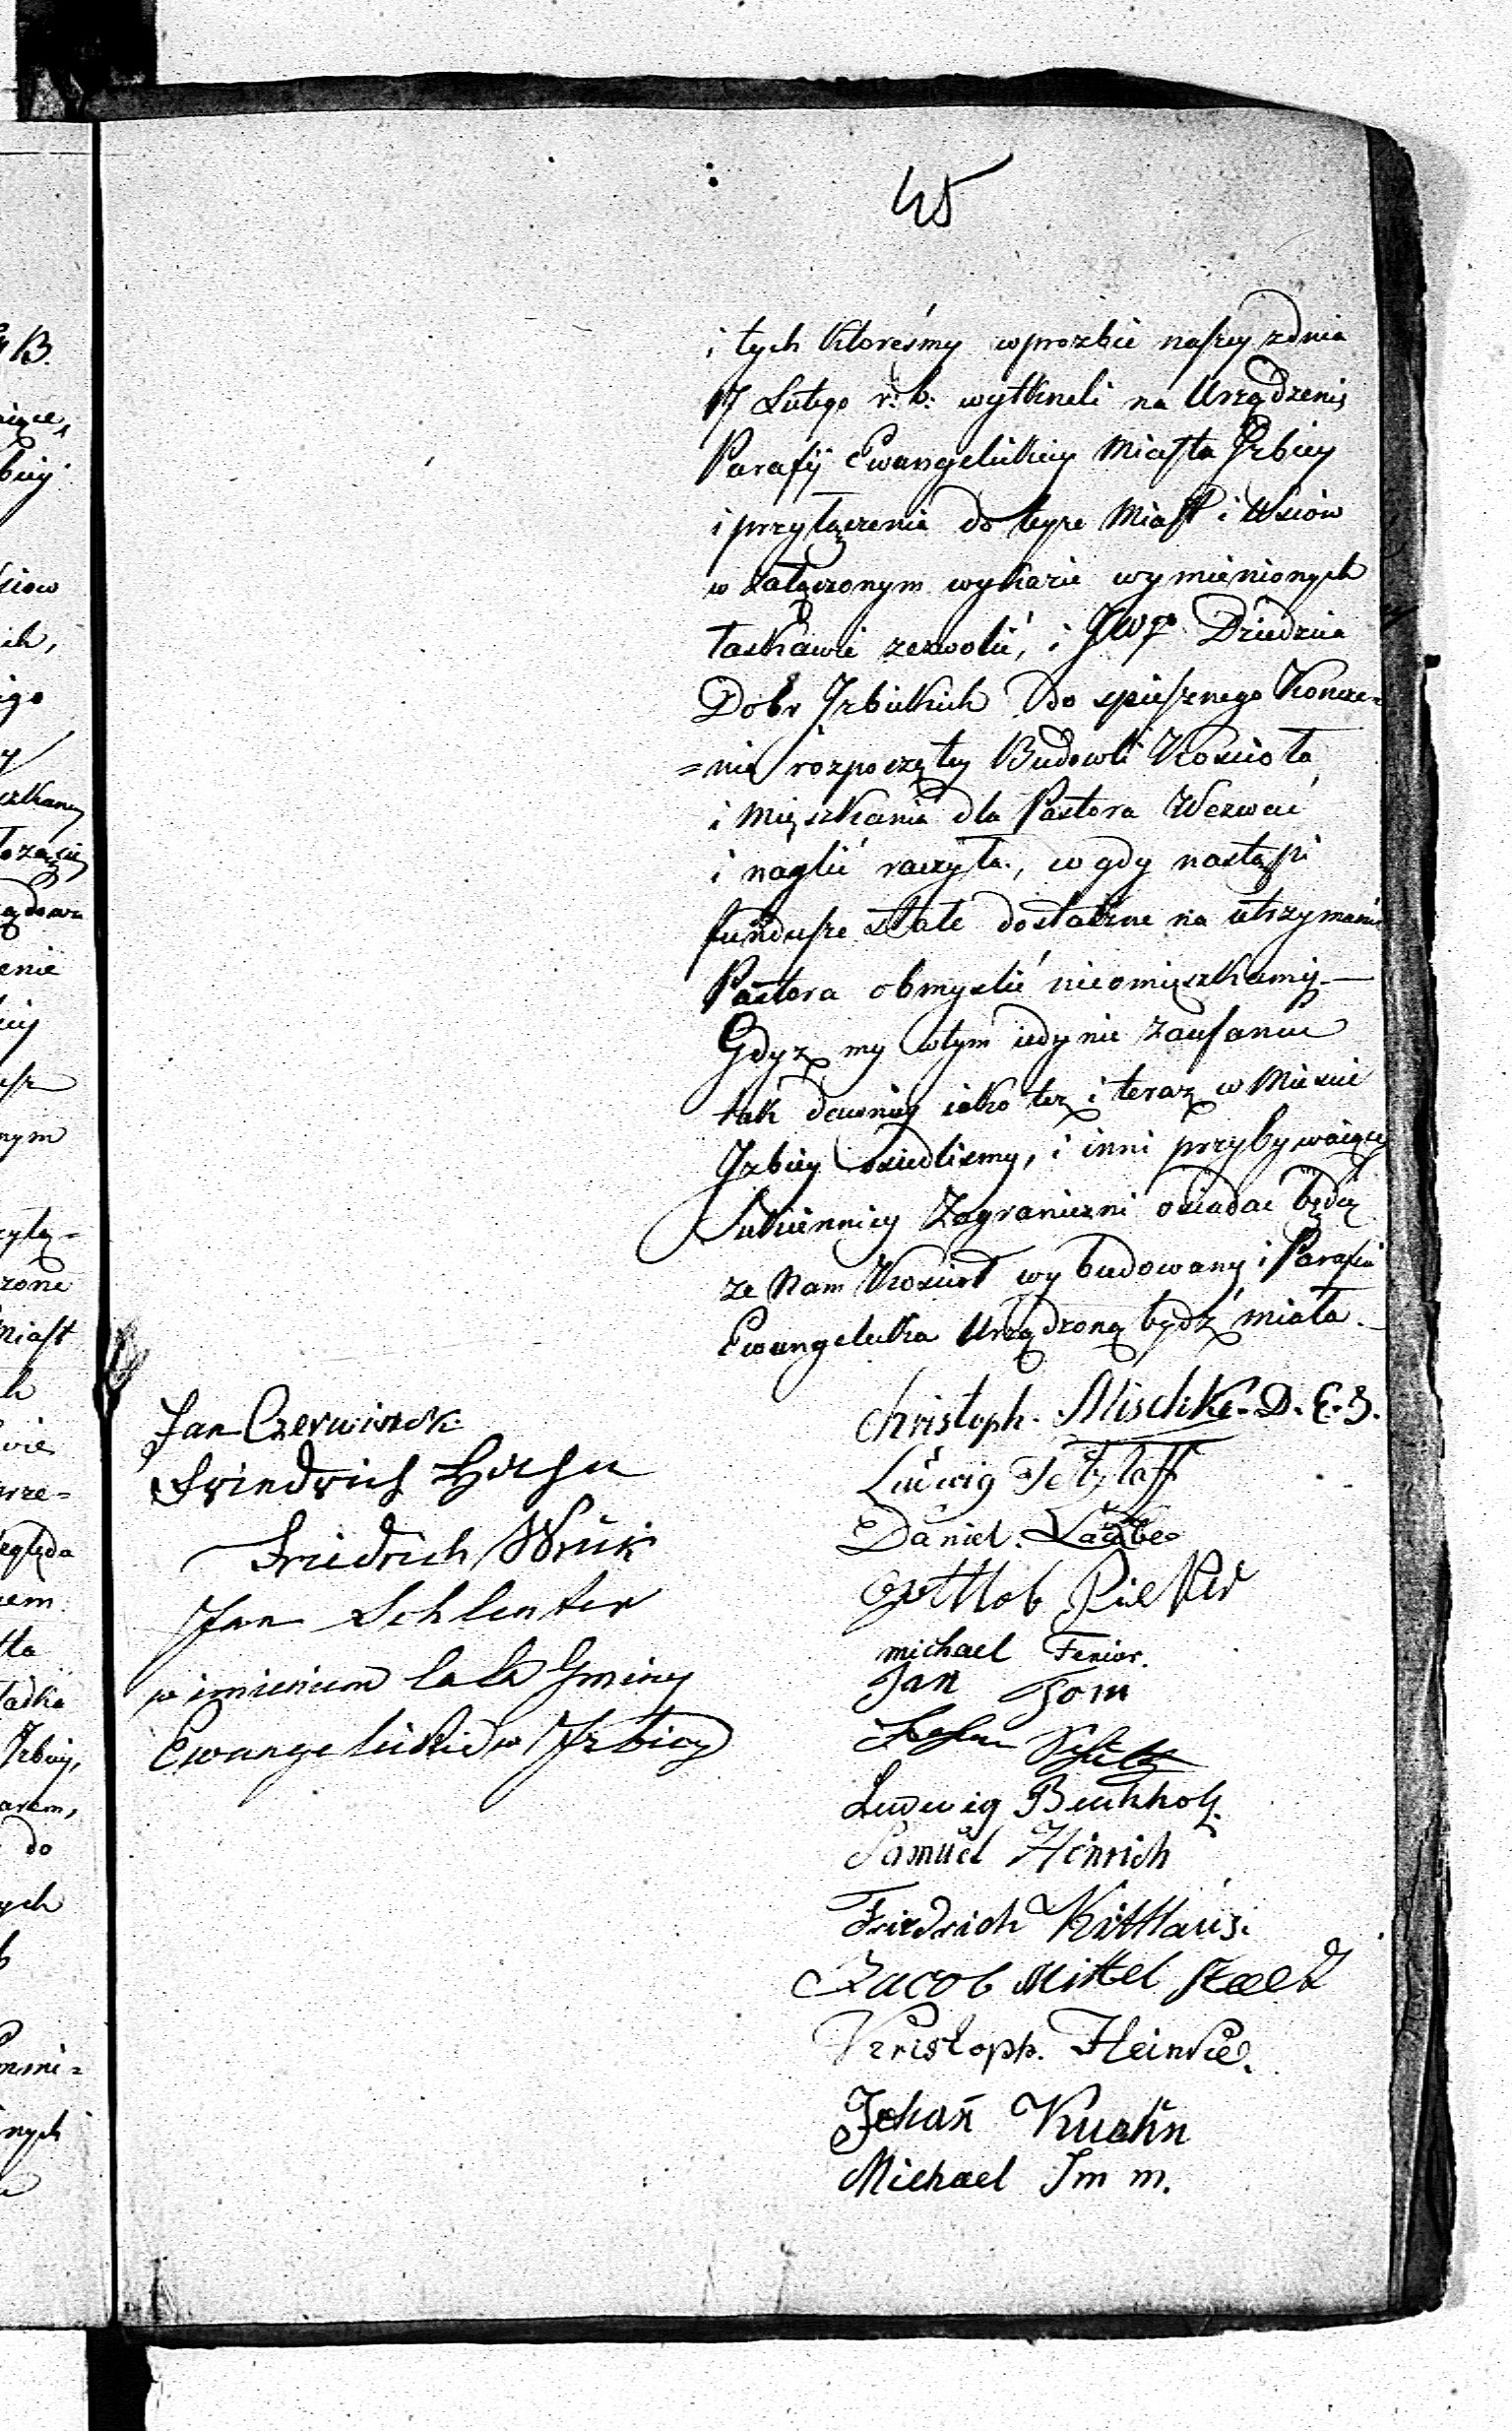 45
i tych któreśmy w prozbie naszey z dnia
17 Lutego r: b: wytkneli na Urządzenie
Parafij Ewangelickiey Miasta Jzbicy
i przyłączenia do teyże Miast i Wsiów
w załączonym wykazie wymienionych
łaskawie zezwolić, i JWgo Dziedzica
Dobr Jzbickich do spiesznego Koncze=
=nia rozpoczętey Budowli Kościoła
i Mięszkania dla Pastora Wezwać
i naglić raczyła, w gdy nastąpi
fundusze stałe dostateczne na utrzymanie
Pastora obmyslić nieomięszkamy.—
Gdyż my w tym iedynie zaufaniu
tak dawniey iako też i teraz w Miescie
Jzbicy osiedlismy, i inni przybywaiący
Sukiennicy Zagraniczni osiadać będą
ze Nam Kosciół wybudowany i Parafia
Ewangelicka Urządzoną bydź miała.
Christoph. Mischke. D. E. S.
Ludwig Tetzlaff
Daniel.
Gottlob
michael
Jan
Schultz
Ludwig Buchholz
Samuel Heinrich
Friedrich Kittlaus.
Jacob Mittel staedt
Kristoph. Heinke.
Johan Kuehn
Michael Imm.
Jan Czerwinsk
Friedrich Hohn
Friedrich Wruk
Jan Schlenker
w imieniem całe Gminy
Ewangelickiew Jzbicy